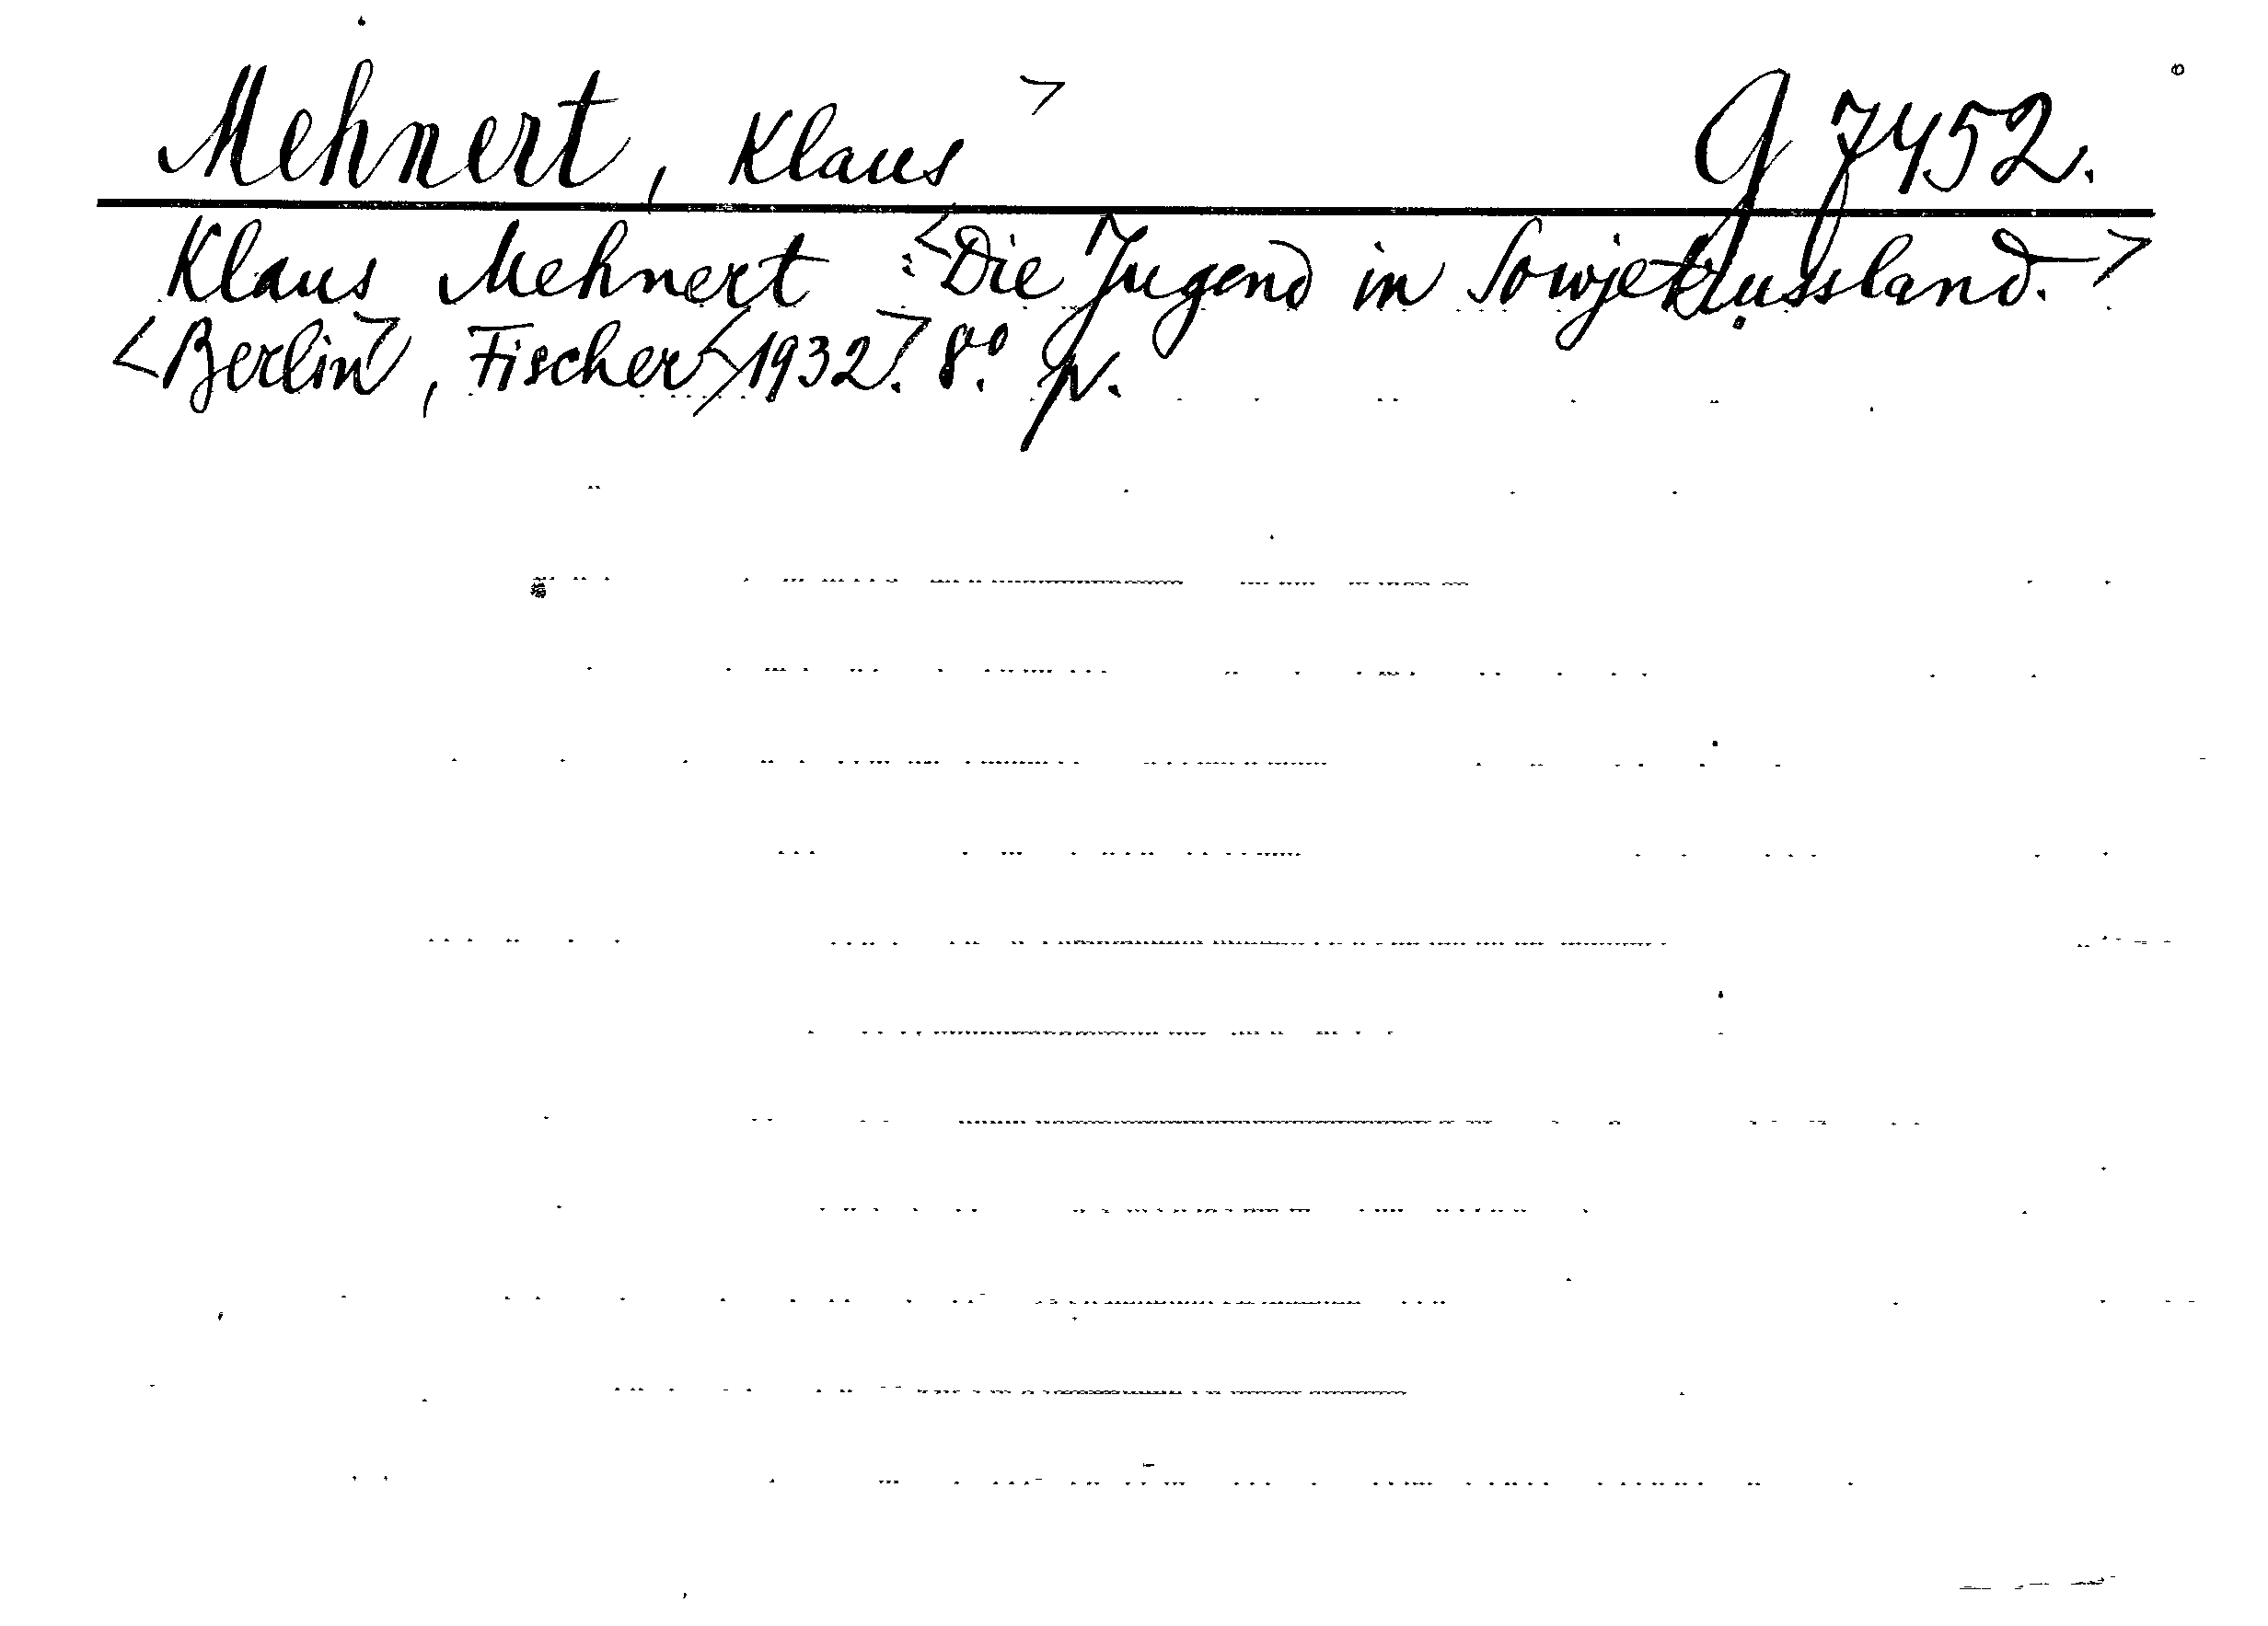 Mehnert, Klaus> G 7452.
Klaus Mehnert : <Die Jugend in Sowjetrussland.>
<Berlin>, Fischer <1932>. 8.° p.